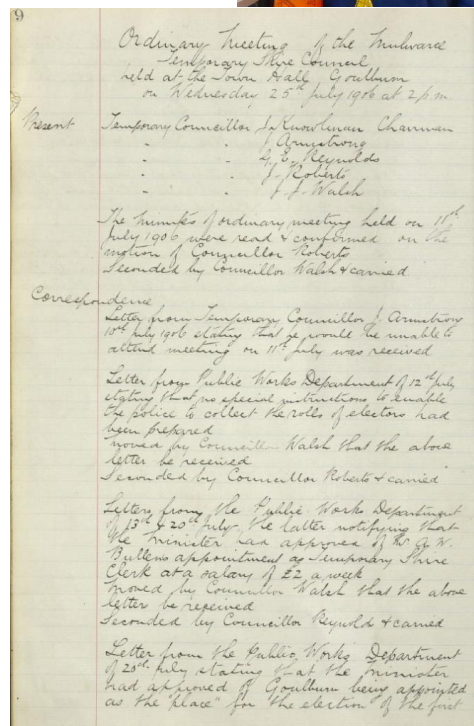 9
Ordinary Meeting of the Mulwaree
Temporary Shire Council
held at the Town Hall, Goulburn
on Wednesday 25th July 1906 at 2 p m
Present Temporary Councillor J. Knowlman Chairman
" " J Armstrong
" " G. E. Reynolds
" " J. Roberts
" " J. J. Walsh
The Minutes of ordinary meeting held on 11th
July 1906 were read & confirmed on the
motion of Councillor Roberts
Seconded by Councillor Walsh & carried
Correspondence
Letter from Temporary Councillor J. Armstrong
10th July 1906 stating that he would be unable to
attend meeting on 11th July was received
Letter from Public Works Department of 12th July
stating that no special instructions to enable
the police to collect the rolls of electors had
been prepared
moved by Councillor Walsh that the above
letter be received
Seconded by Councillor Roberts & carried
Letters from the Public Works Department
of 13th & 20th July, the latter notifying that
the Minister had approved of Mr A. W.
Bullens appointment as Temporary Shire
Clerk at a salary of £2 a week
moved by Councillor Walsh that the above
letter be received
Seconded by Councillor Reynold & carried
Letter from the Public Works Department
of 20th July stating that the Minister
had approved of Goulburn being appointed
as the "place" for the election of the first